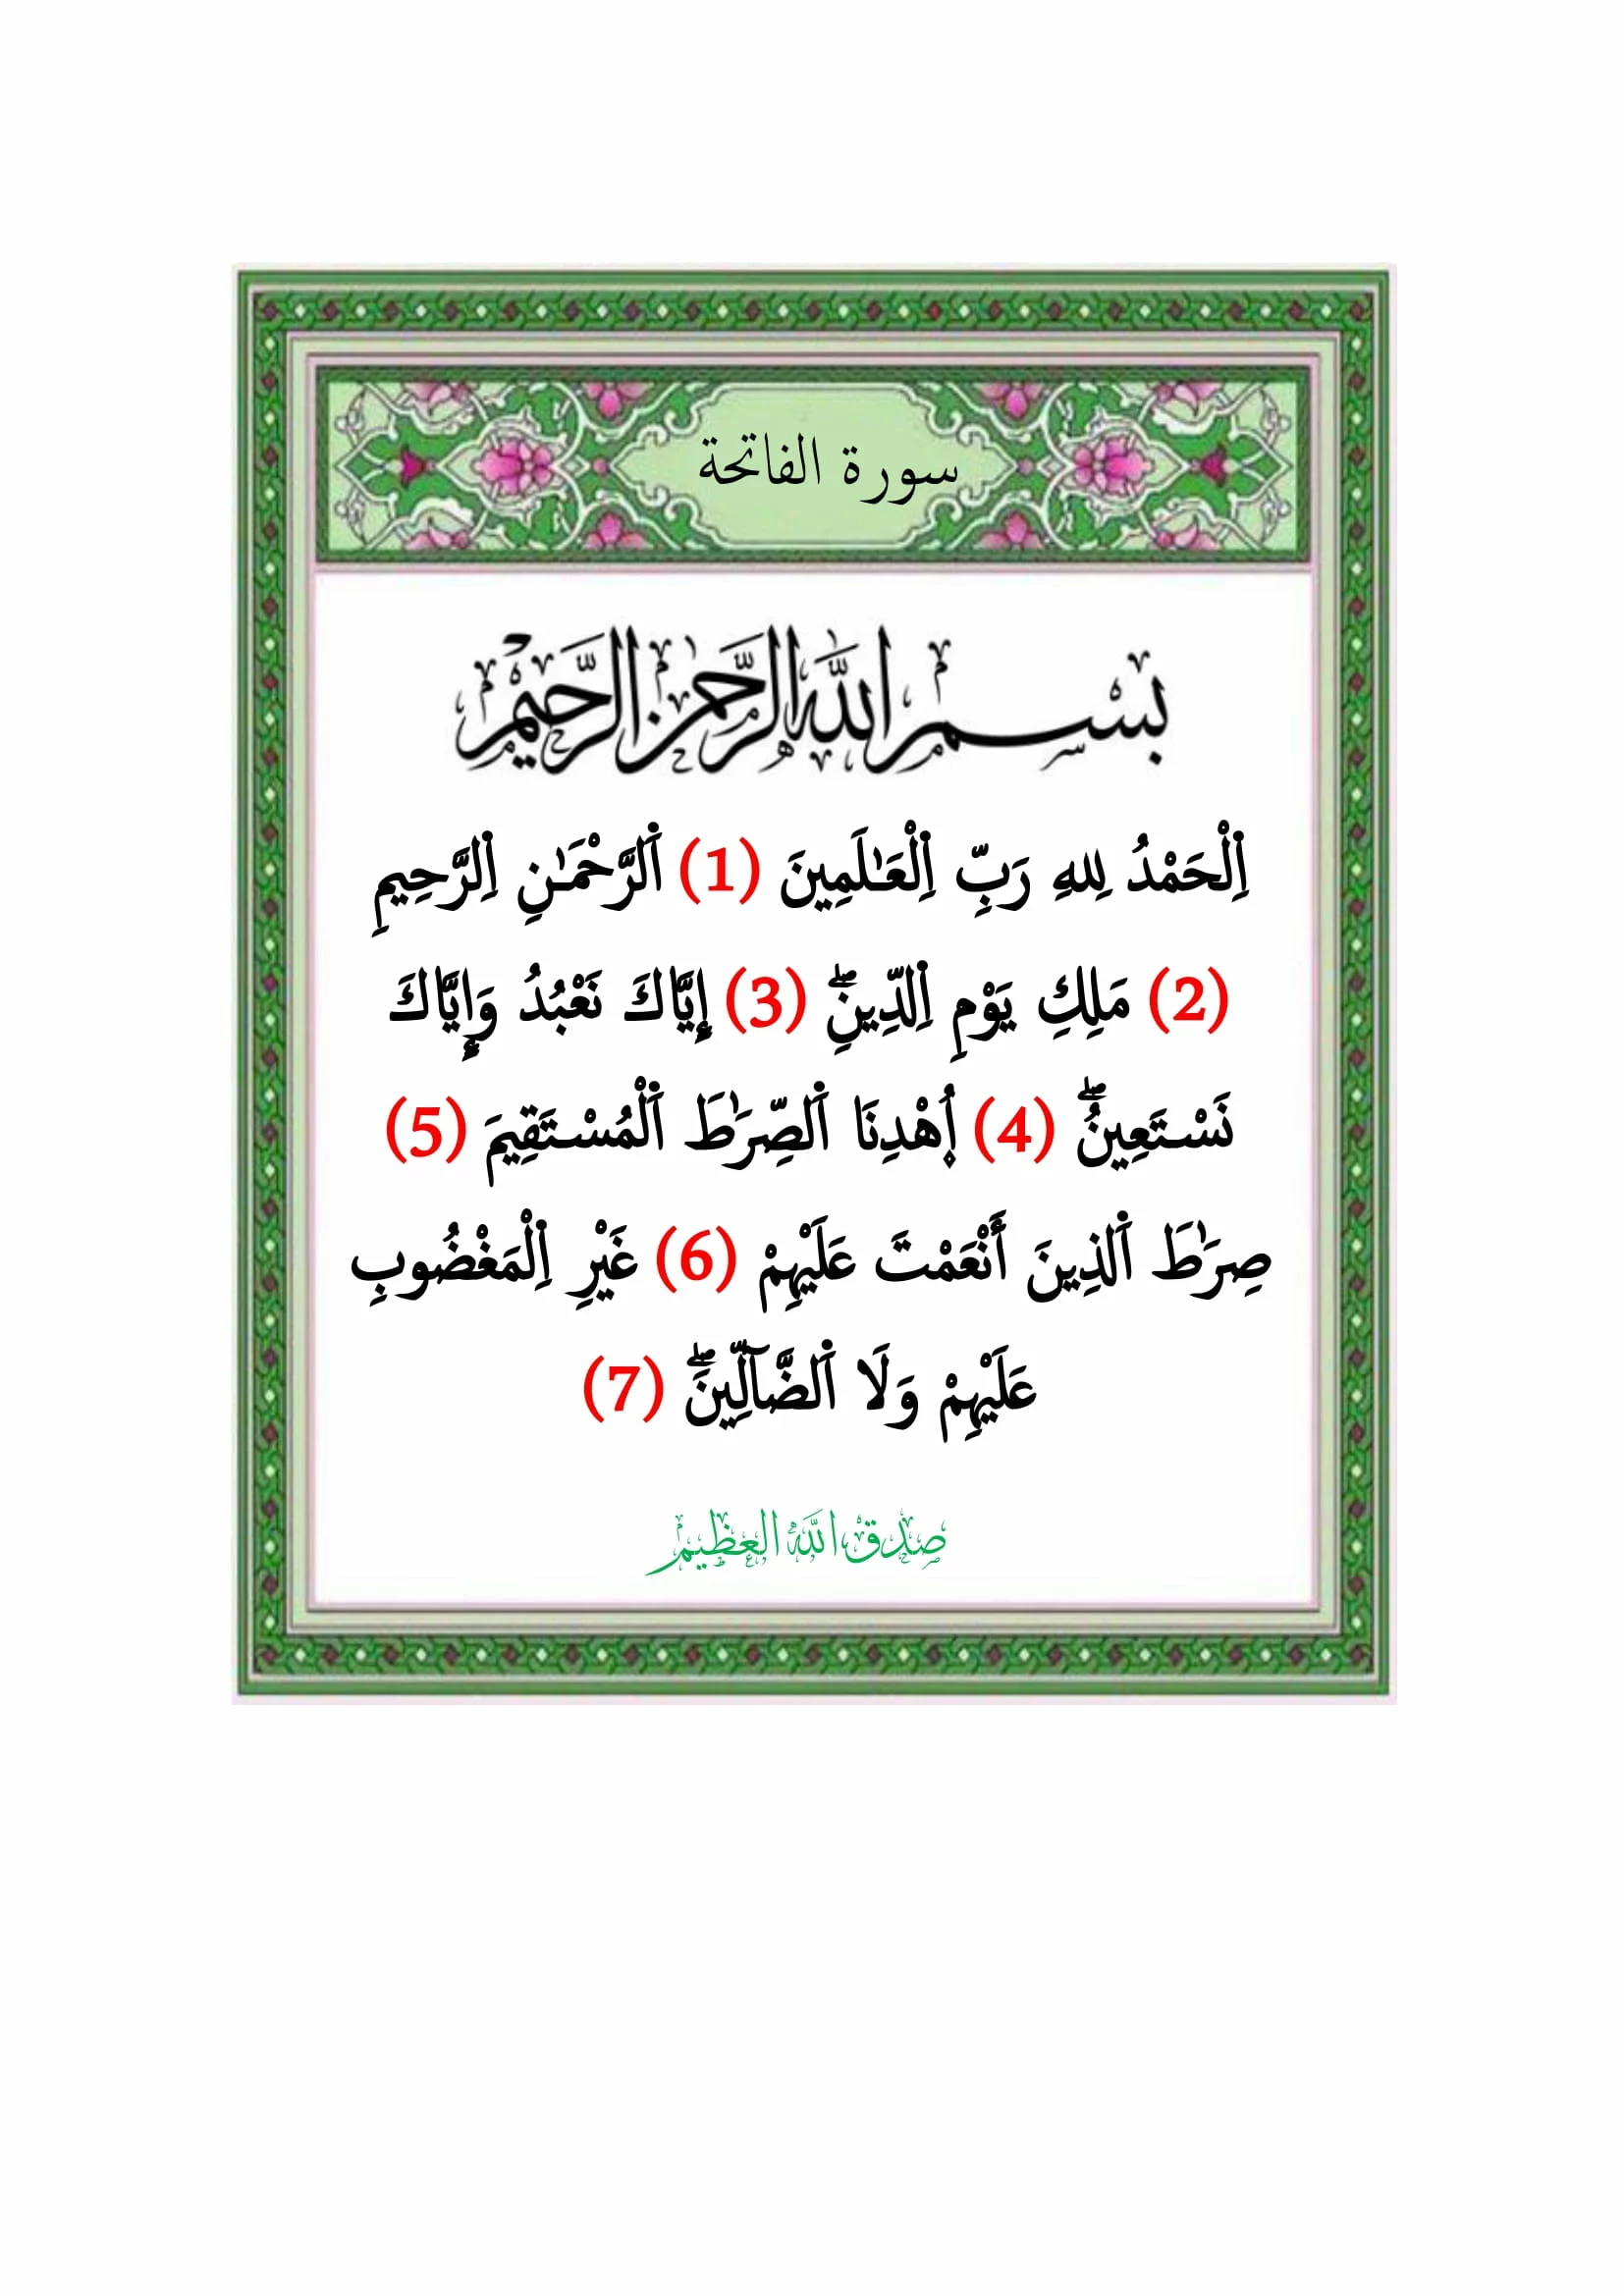 سورة الفاتحة
بِسْمِ اللَّهِ الرَّحْمَنِ الرَّحِيمِ
اِ۬لْحَمْدُ لِلهِ رَبِّ اِ۬لْعَـٰلَمِينَ (1) اَ۬لرَّحْمَـٰنِ اِ۬لرَّحِيمِ
(2) مَلِكِ يَوْمِ اِ۬لدِّينِۖ (3) إِيَّاكَ نَعْبُدُ وَإِيَّاكَ
نَسْتَعِينُۖ (4) اُ۪هْدِنَا اَ۬لصِّرَٰطَ اَ۬لْمُسْتَقِيمَ (5)
صِرَٰطَ اَ۬لذِينَ أَنْعَمْتَ عَلَيْهِمْ (6) غَيْرِ اِ۬لْمَغْضُوبِ
عَلَيْهِمْ وَلَا اَ۬لضَّآلِّينَۖ (7)
صدق الله العظيم